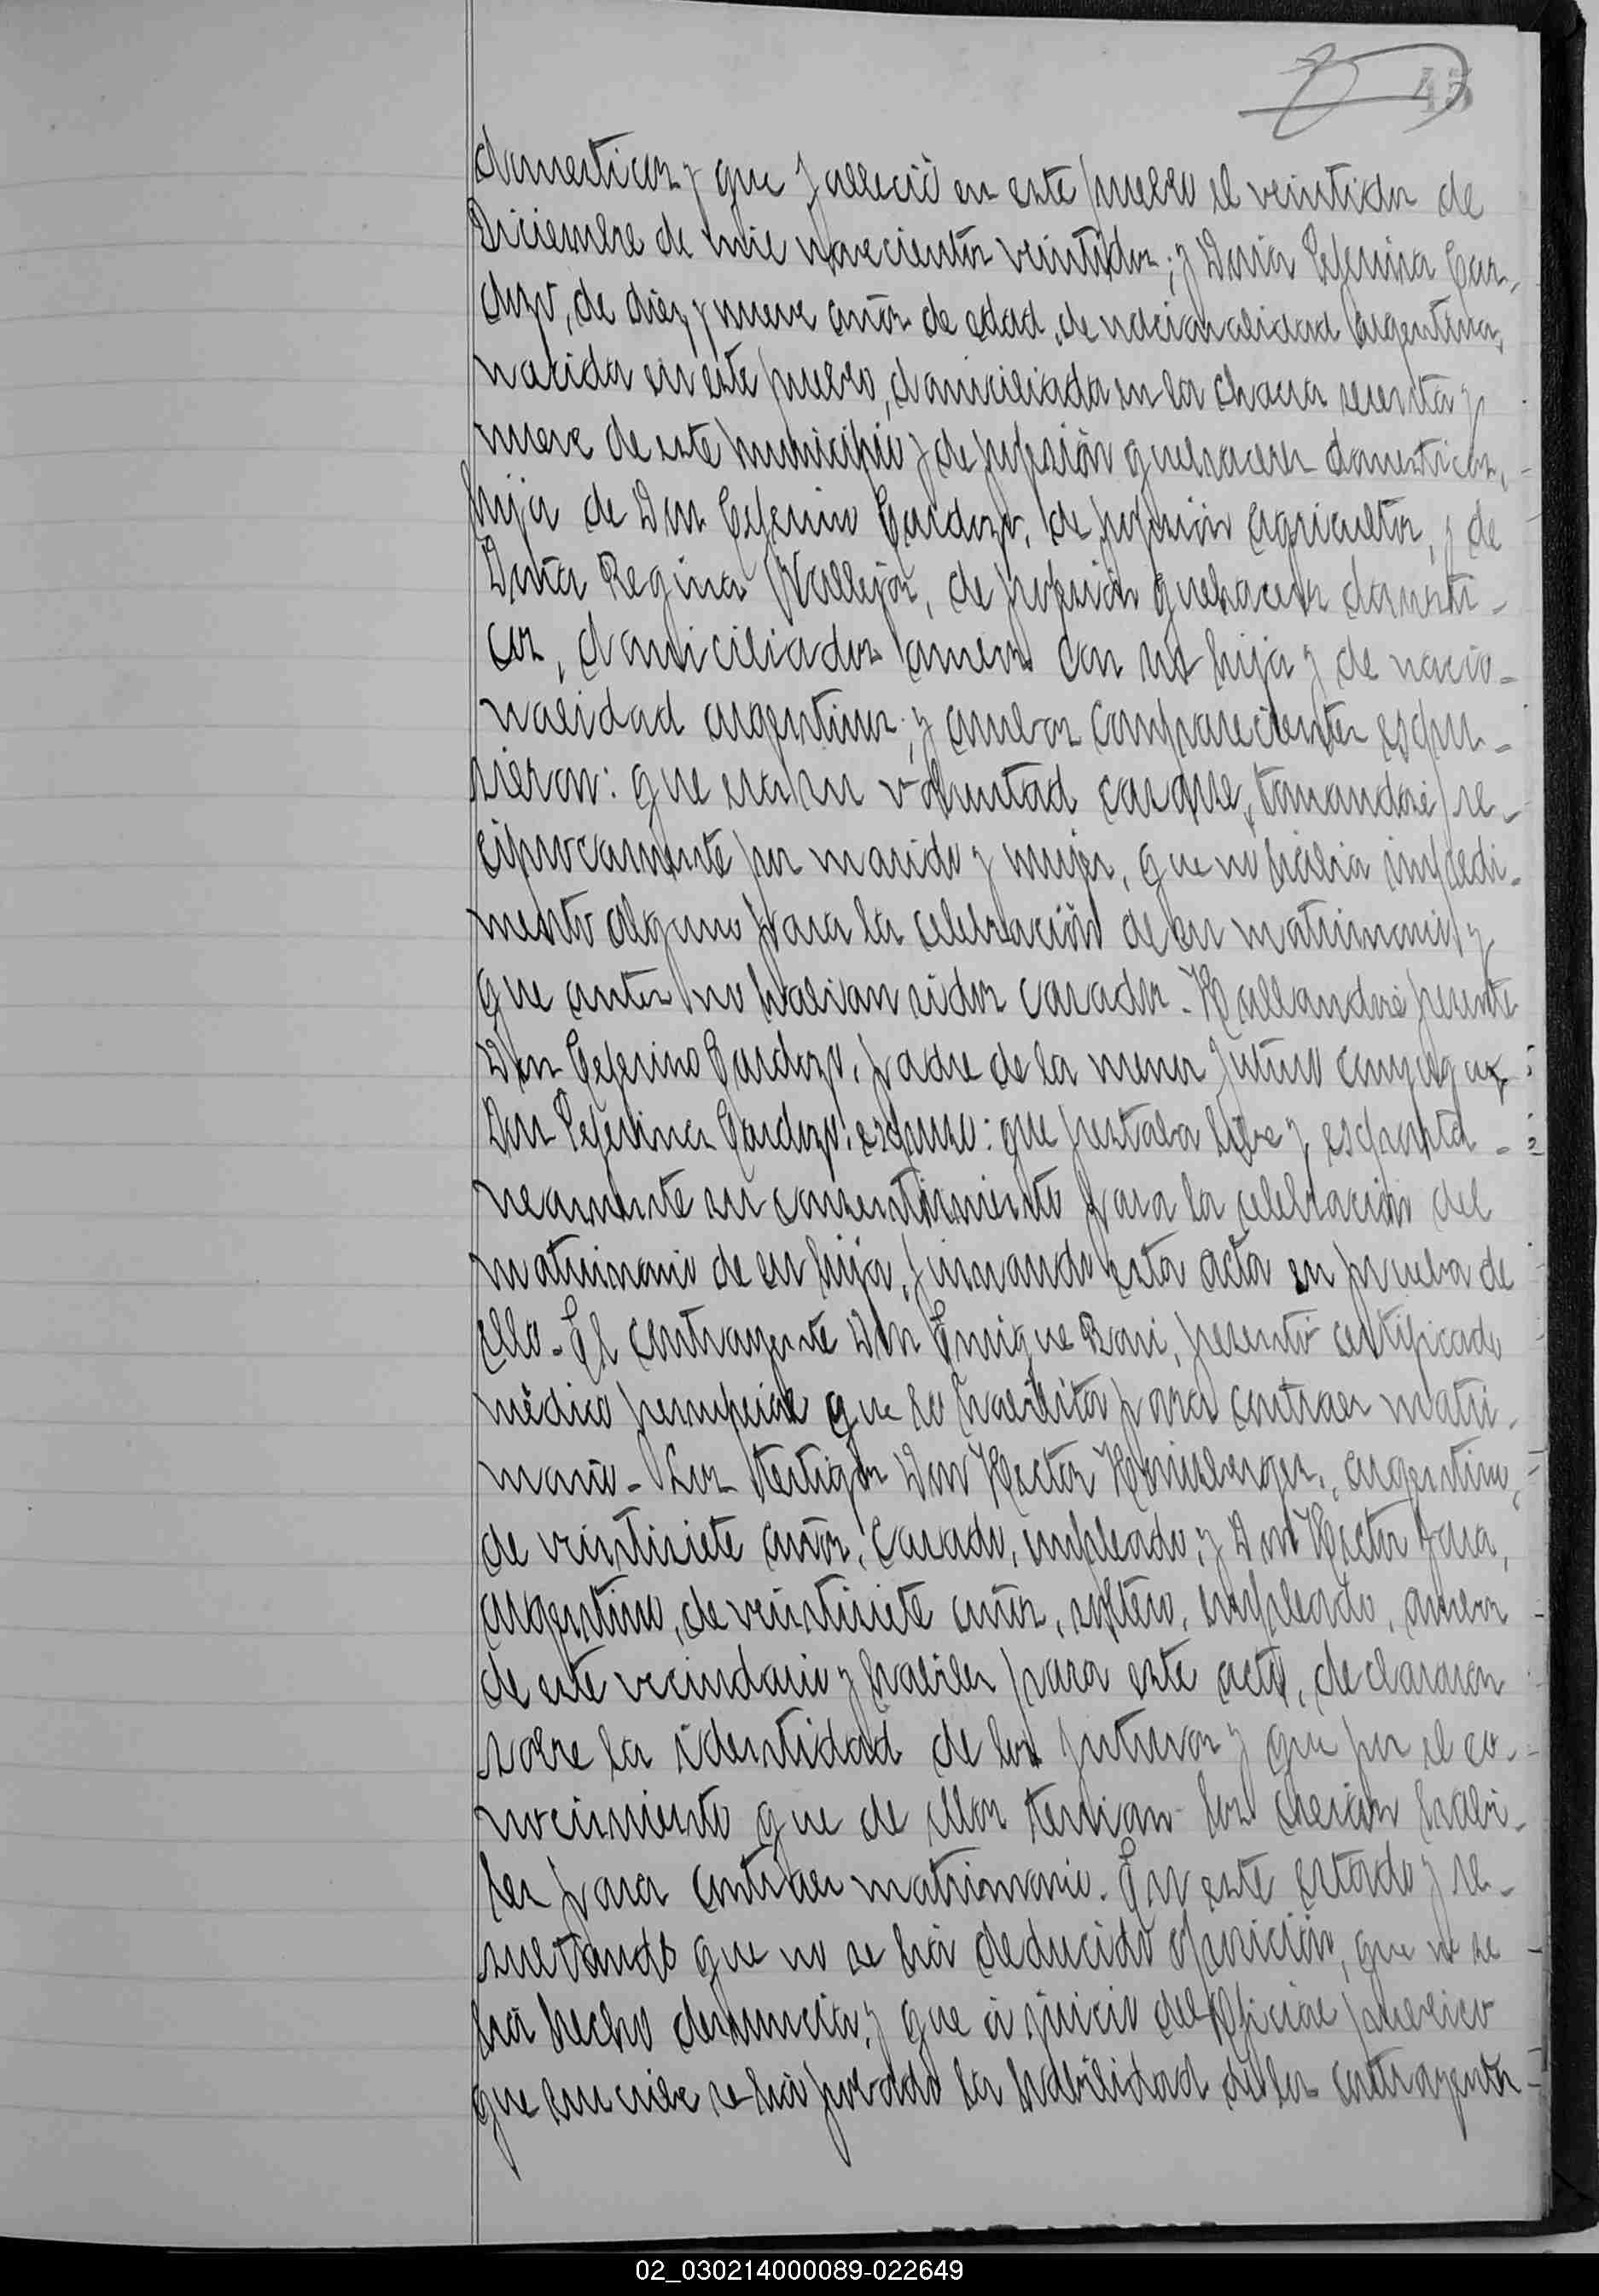 45
domesticos y que falleció en este pueblo el veintidos de
Diciembre de mil novecientos veintidos; y Doña Ceferina Car-
dozo, de diez y nueve años de edad, de nacionalidad argentina,
nacida en este pueblo, domiciliada en la chacra sesenta y
nueve de este municipio y de profesión quehaceres domesticos,
hija de Don Ceferino Cardozo, de profesión agricultor, y de
Doña Regina Vallejos, de profesión quehaceres domesti-
cos, domiciliados ambos con su hija y de nacio-
nalidad argentinos; y ambos comparecientes espu-
sieron: que era su voluntad casarse, tomandosé re-
ciprocamente por marido y mujer, que no habia impedi-
mento alguno para la celebración de su matrimonio y
que antes no habian sidos casados. Hallandosé presente
Don Ceferino Cardozo, padre de la menor futura conyuge
Ceferina Cardozo, espuso: que prestaba libre y esponta-
neamente su consentimiento para la celebración del
matrimonio de su hija, firmando esta acta en prueba de
ello. El contrayente Don Enrique Boni, presentó certificado
médico prenupcial que lo habilita para contraer matri-
monio. Los testigos Don Hector argentino,
de veintisiete años, casado, empleado; y Don Hector Jara,
argentino, de veintisiete años, soltero, empleado, ambos
de este vecindario y habiles para este acto, declararon
sobre la identidad de los futuros y que por el co-
nocimiento que de ellos tenian los creian habi-
les para contraer matrimonio. En este estado y re-
sultando que no se há deducido oposición, que no se
há hecho denuncia, y que á juicio del Oficial publico
que suscribe se há probado la habilidad de los contrayentes
02_030214000089-022649